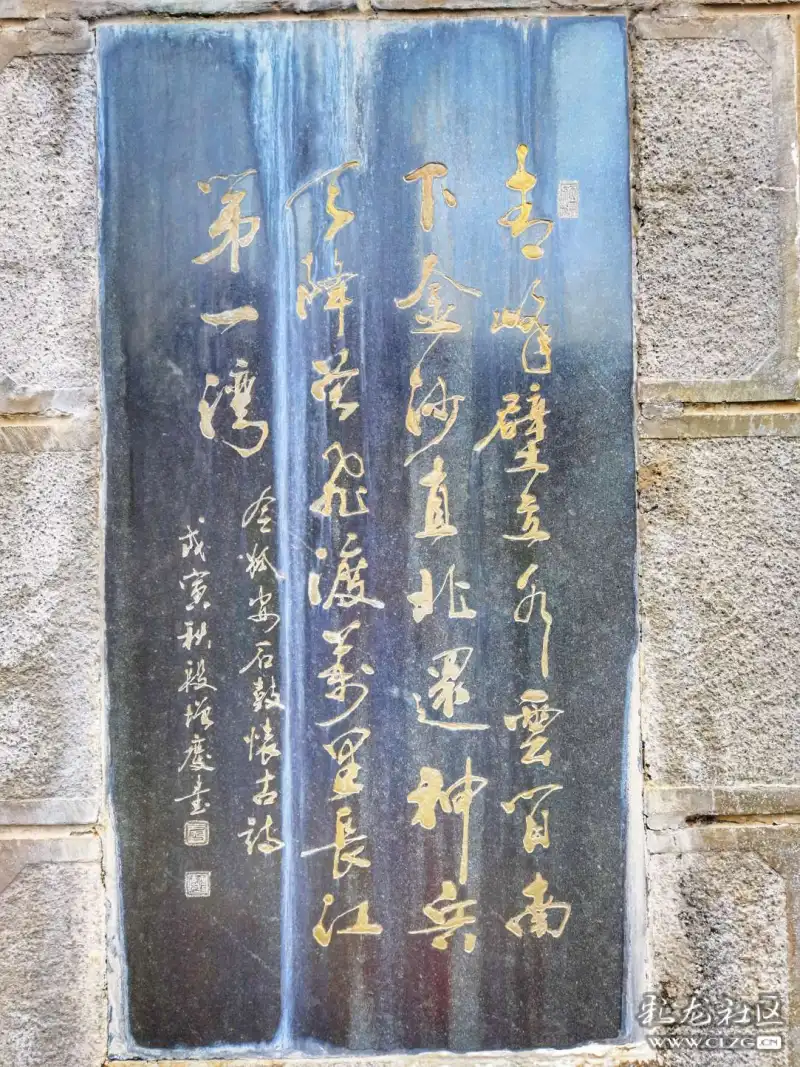 青峰壁立水雲間南
下金沙直北還神兵
天降飛渡萬里長江
第一灣
令狐安石鼓懷古詩
戊寅秋段增慶書
彩龙社区
WWW.CLZG.CN